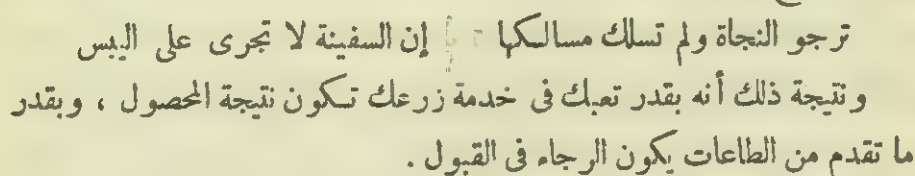 ترجو النجاة ولم تسلك مسالكها إن السفينة لا تجرى على اليبس
ونتيجة ذلك أنه بقدر تعبك فى خدمة زرعك تكون نتيجة المحصول ، وبقدر
ما تقدم من الطاعات يكون الرجاء فى القبول .